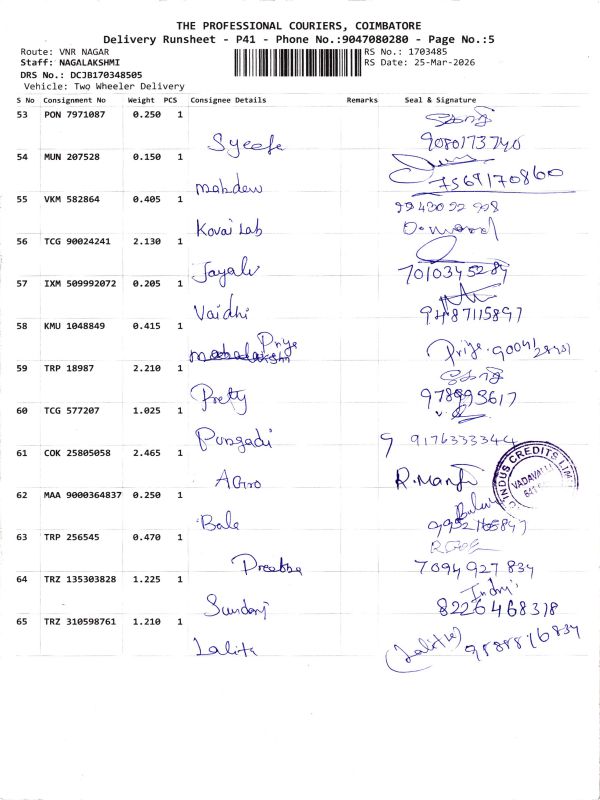 THE PROFESSIONAL COURIERS, COIMBATORE
Delivery Runsheet - P41 - Phone No.:9047080280 - Page No.:5
Route: VNR NAGAR RS No.: 1703485
Staff: NAGALAKSHMI RS Date: 25-Mar-2026
DRS No.: DCJB170348505
Vehicle: Two Wheeler Delivery
S No Consignment No Weight PCS Consignee Details Remarks Seal & Signature
53 PON 7971087 0.250 1
9080173740
54 MUN 207528 0.150 1
7569170860
55 VKM 582864 0.405 1
Kovai Lab
56 TCG 90024241 2.130 1
Jayalu 7010345284
57 IXM 509992072 0.205 1
Vaidhi 9487115897
58 KMU 1048849 0.415 1
Priya
Priya.
59 TRP 18987 2.210 1
Pretty
60 TCG 577207 1.025 1
9176333344
61 COK 25805058 2.465 1
Agro R.Manj
INDUS CREDITS LIM
VADAVALLI
62 MAA 9000364837 0.250 1
Bala
63 TRP 256545 0.470 1
Preetha 7094 927 834
64 TRZ 135303828 1.225 1
8226468318
65 TRZ 310598761 1.210 1
Lalita